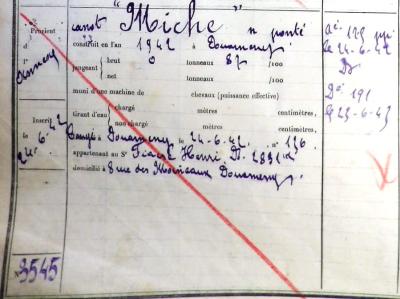 canot "Miche" n ponté
Provient construit en l'an 1942 à Douarnenez
de brut 0 tonneaux 87 /100
l' jaugeant
net tonneaux /100
muni d'une machine de chevaux (puissance effective)
chargé mètres centimètres,
tirant d'eau
non chargé mètres centimètres,
Inscrit
le à Douarnenez le 24-6-42. n° 136
24-6-42
appartenant au Sr Henri Dz 2891
domicilié à 8 rue des Moineaux Douarnenez.
N° 3545
le 24-6-42
Dz
Do 191
le 23-6-43